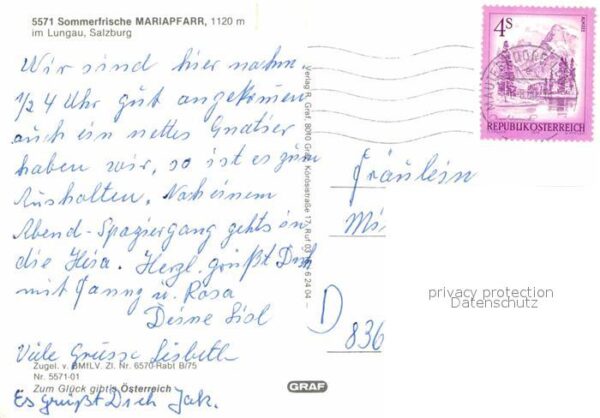 5571 Sommerfrische MARIAPFARR, 1120 m
im Lungau, Salzburg
Wir sind hier nahm
1/2 4 Uhr gut angekomen
auch ein nettes Quatier
haben wir, so ist es zum
Aushalten. Nach einem
Abend-Spaziergang gehts in
die Heia. Herzl. grüßt Dich
mit Fanny u. Rosa
Deine Lisl
Viele Grüsse Lisbeth
Zugel. v. BMfLV. Zl. Nr. 6570-Rabt B/75
Nr. 5571-01
Zum Glück gibt's Österreich
Es grüßt Dich Jak.
Verlag R. Graf, 8010 Graz, Körösistraße 17, Ruf 6 24 04
GRAF
4S
ALMSEE
REPUBLIK ÖSTERREICH
Fräulein
Mi
D
836
privacy protection
Datenschutz